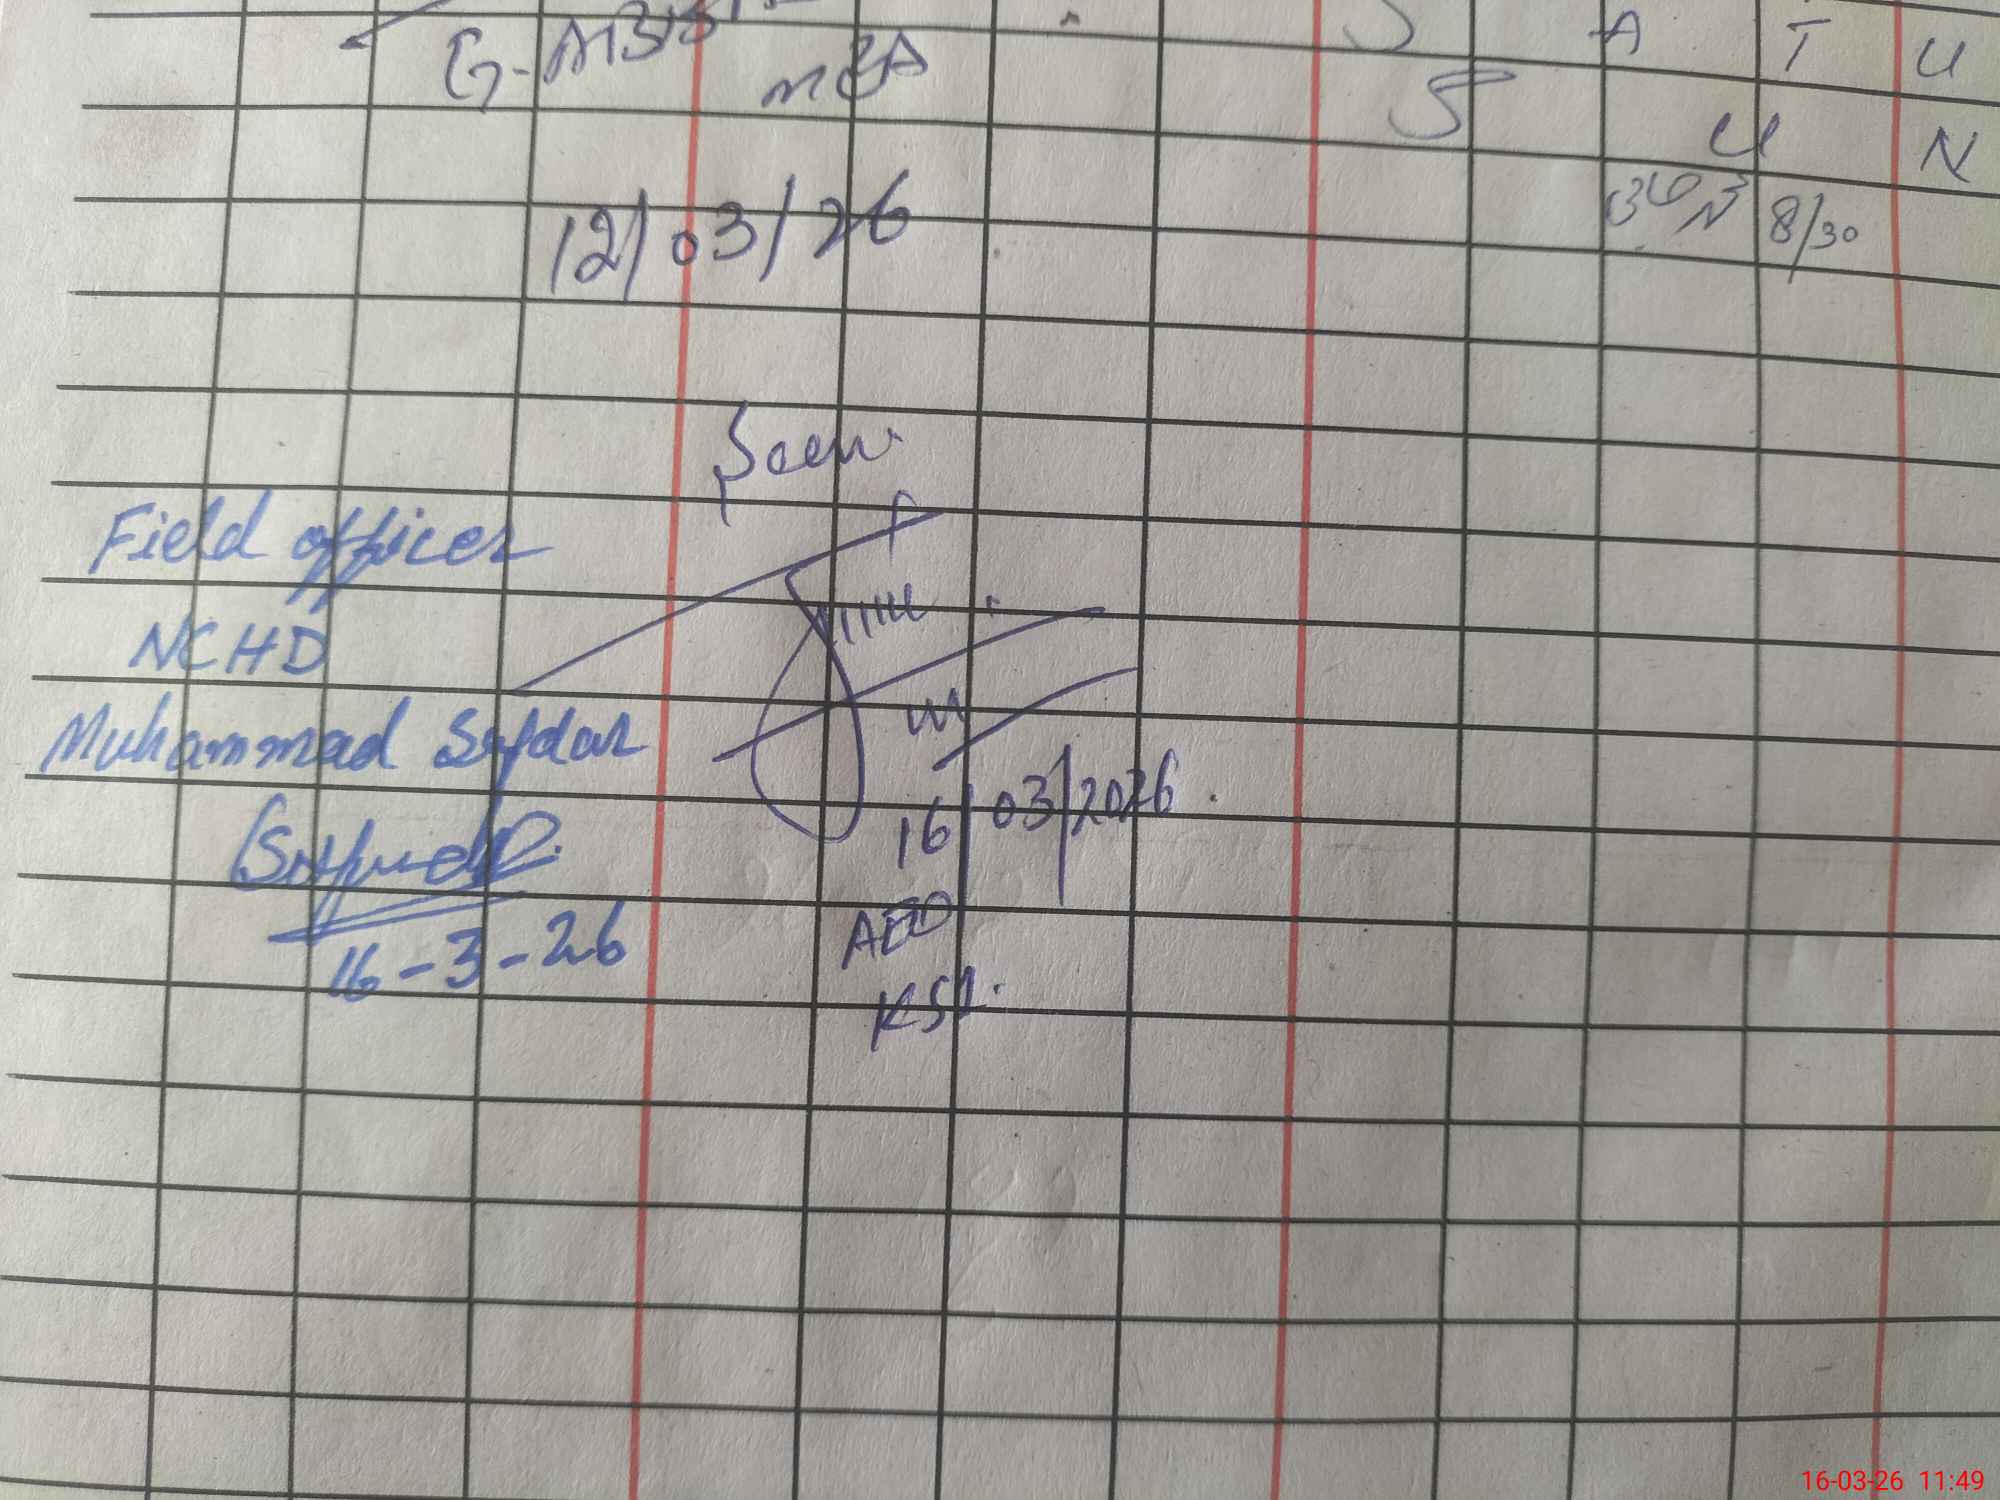 MEA
S A T U
S U N
12/03/26
8/30
Seen
Field officer
NCHD
Muhammad Safdar
16/03/2026
AEO
16-3-26
KSR.
16-03-26 11:49